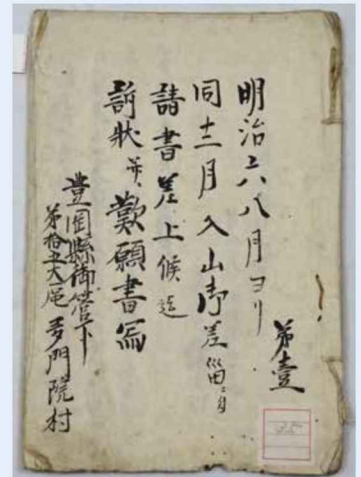 第壹
明治六八月ヨリ
同十二月入山御差留ニ付
請書差上候迄
訴状并歎願書写
豊岡縣御管下
第拾五大区多門院村